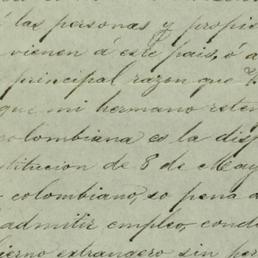 á las personas y propie
vienen á este pais, ó a
principal razon que
que mi hermano osten
colombiana es la disp
stitucion de 8 de May
colombiano, so pena d
admitir empleo, cond
ierno extrangero sin per